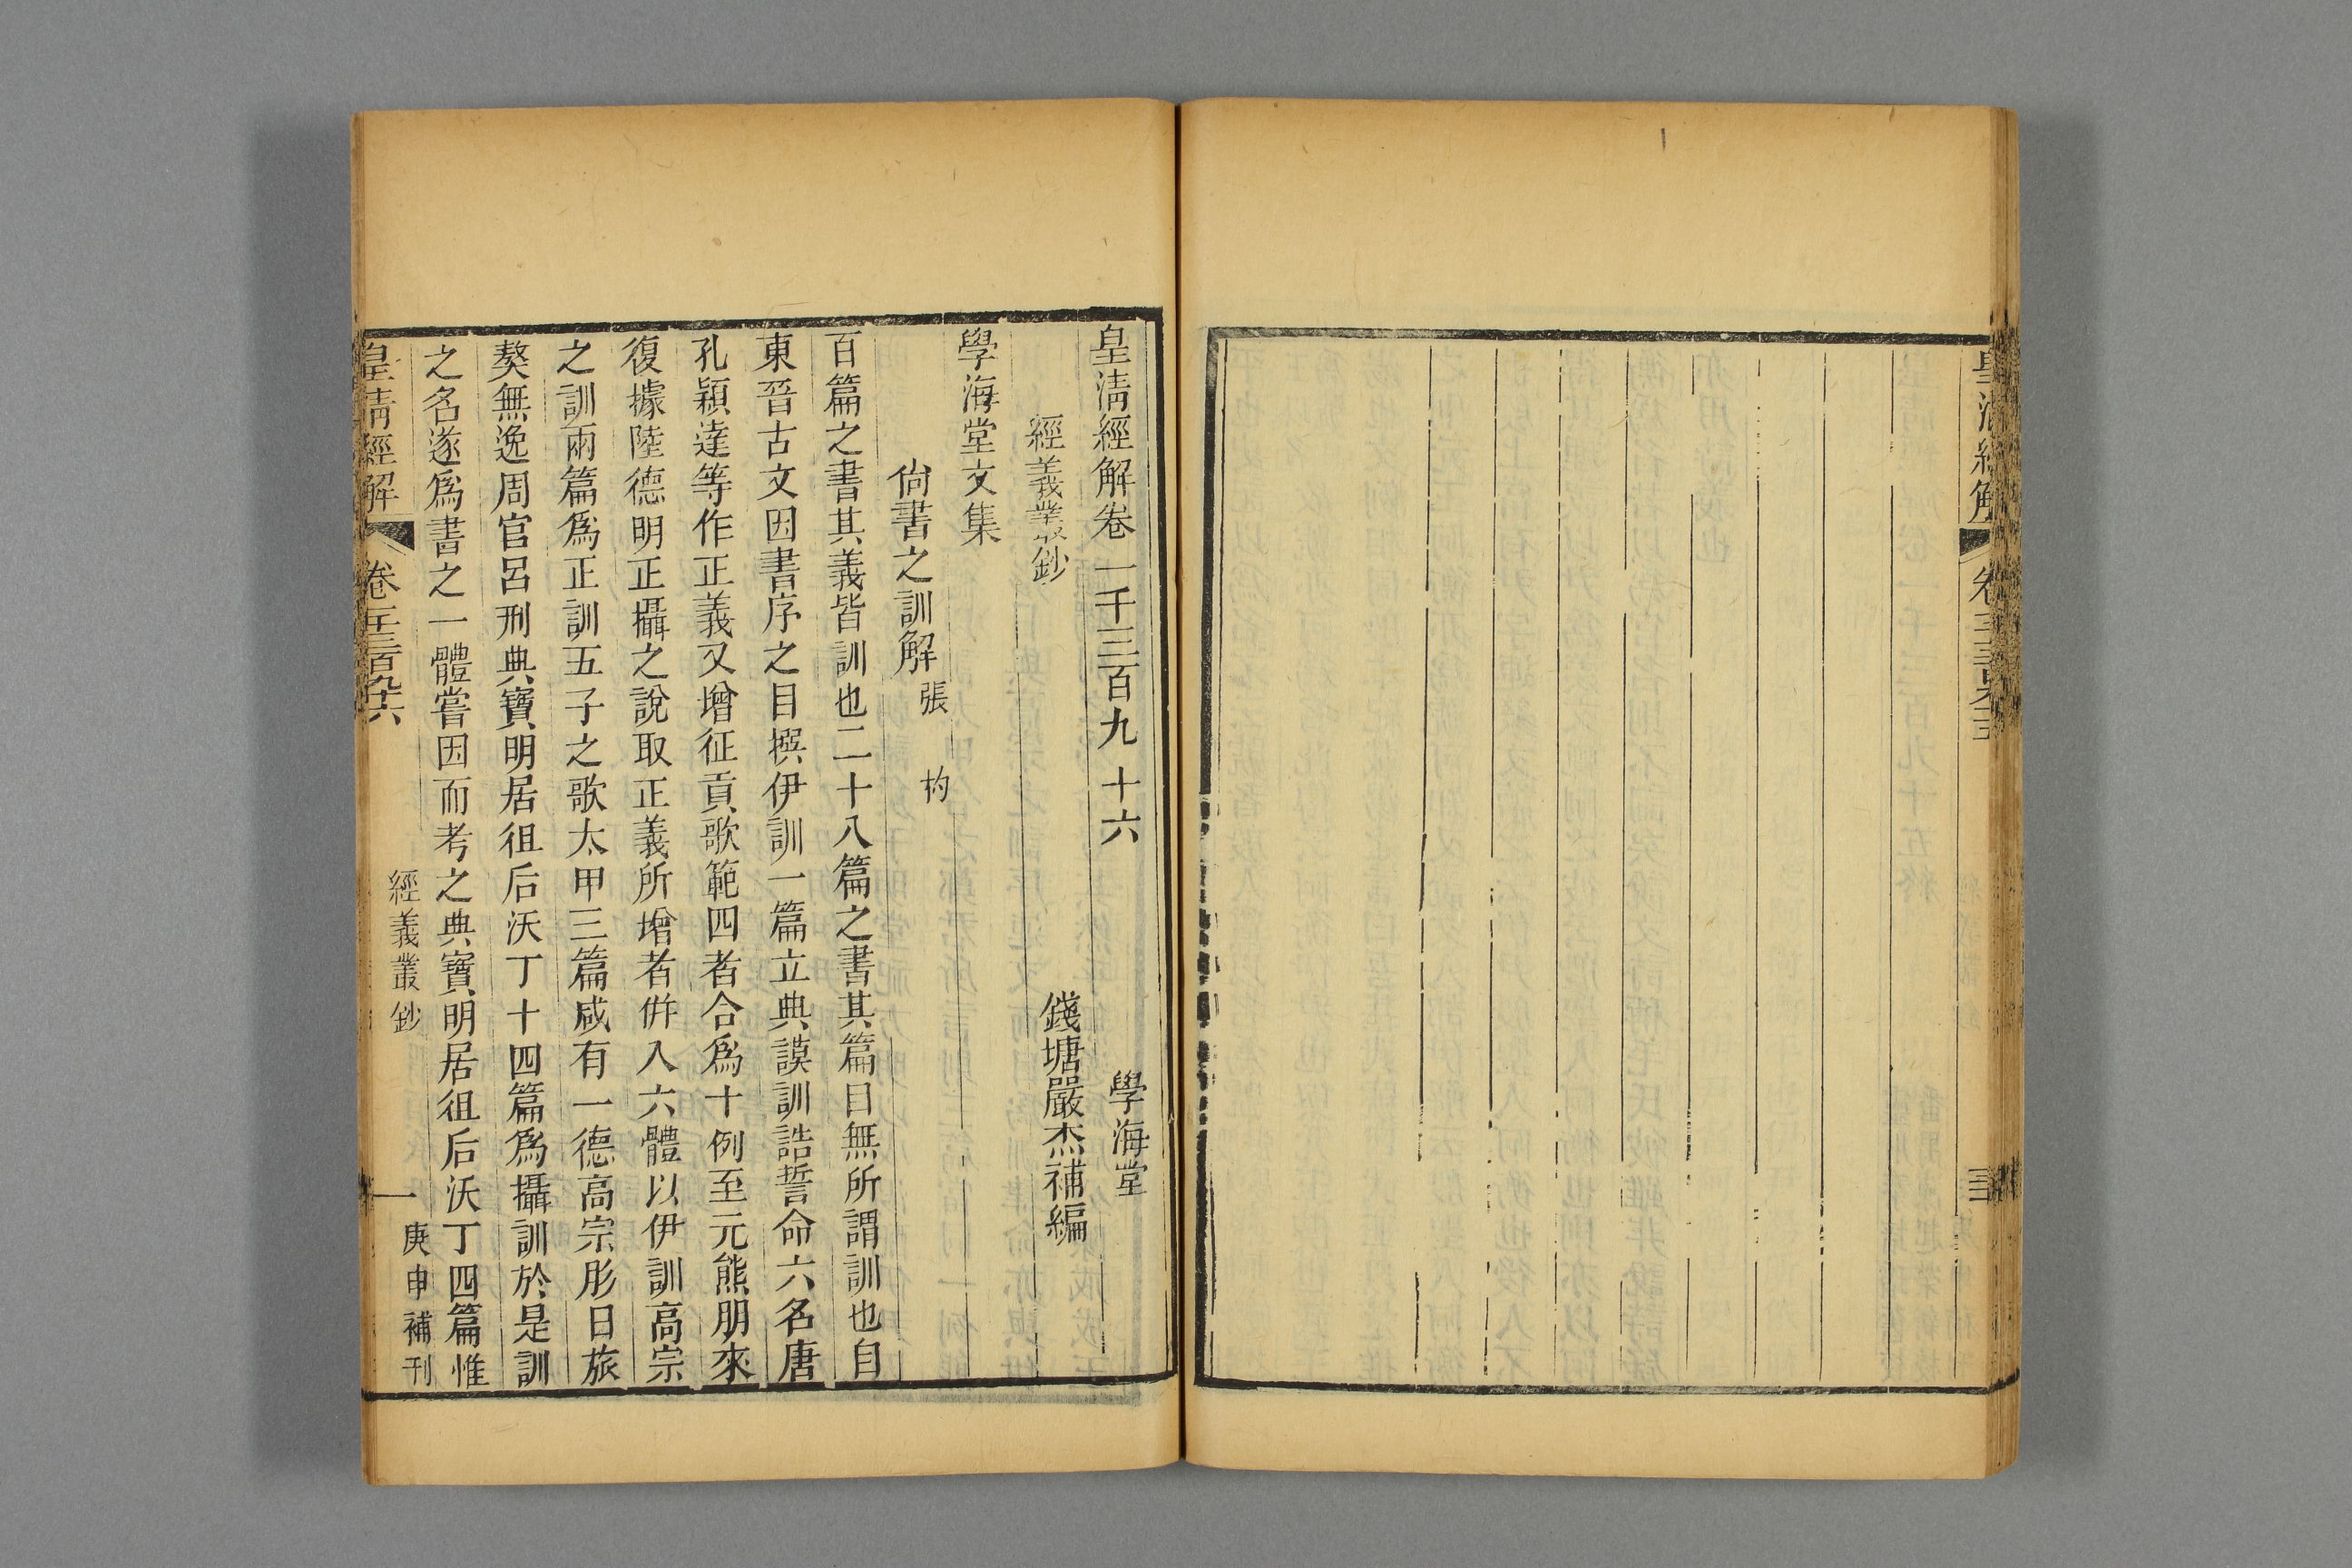 皇淸經解卷一千三百九十六
學海堂
經義叢鈔
錢塘嚴杰補編
學海堂文集
尙書之訓解
張杓
百篇之書其義皆訓也二十八篇之書其篇目無所謂訓也自
東晉古文因書序之目撰伊訓一篇立典謨訓誥誓命六名唐
孔穎達等作正義又增征貢歌範四者合爲十例至元熊朋來
復據陸德明正攝之說取正義所增者併入六體以伊訓高宗
之訓兩篇爲正訓五子之歌太甲三篇咸有一德高宗肜日旅
獒無逸周官呂刑典寶明居徂后沃丁十四篇爲攝訓於是訓
之名遂爲書之一體嘗因而考之典寶明居徂后沃丁四篇惟
皇淸經解
卷千三百九十六
經義叢鈔
一
庚申補刊